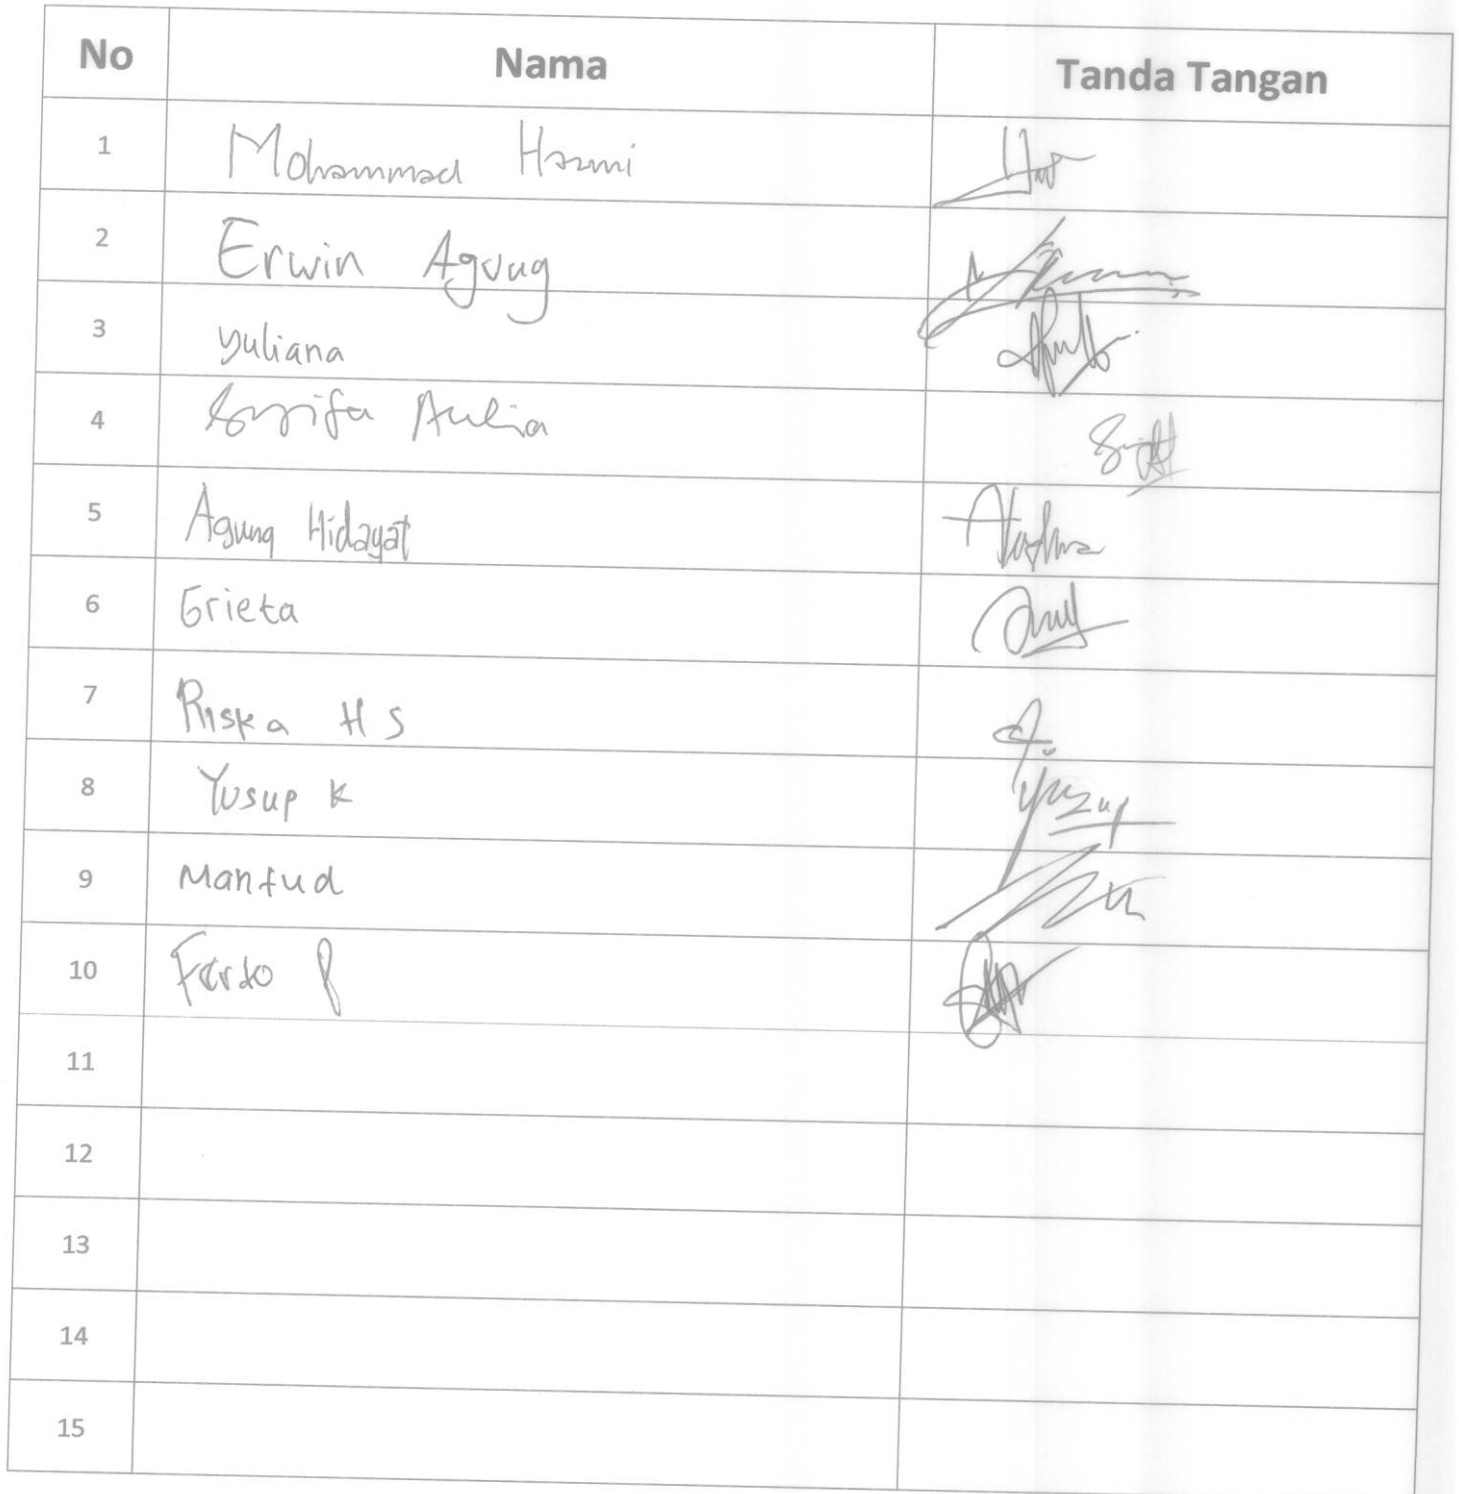 No Nama Tanda Tangan
1 Mohammad Hazmi
2 Erwin Agung
3 yuliana
4 Syifa Aulia
5 Agung Hidayat
6 Grieta
7 Riska H S
8 Yusup K Yusup
9 Manfud
10
11
12
13
14
15